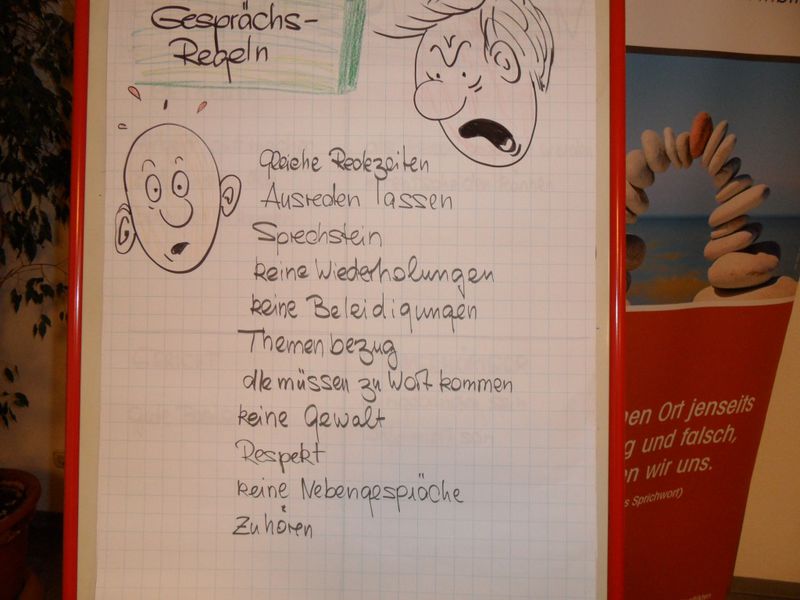 Gesprächs-
Regeln
gleiche Redezeiten
Ausreden lassen
Sprechstein
keine Wiederholungen
keine Beleidigungen
Themenbezug
alle müssen zu Wort kommen
keine Gewalt
Respekt
keine Nebengespräche
Zuhören
en Ort jenseits
g und falsch,
n wir uns.
s Sprichwort)